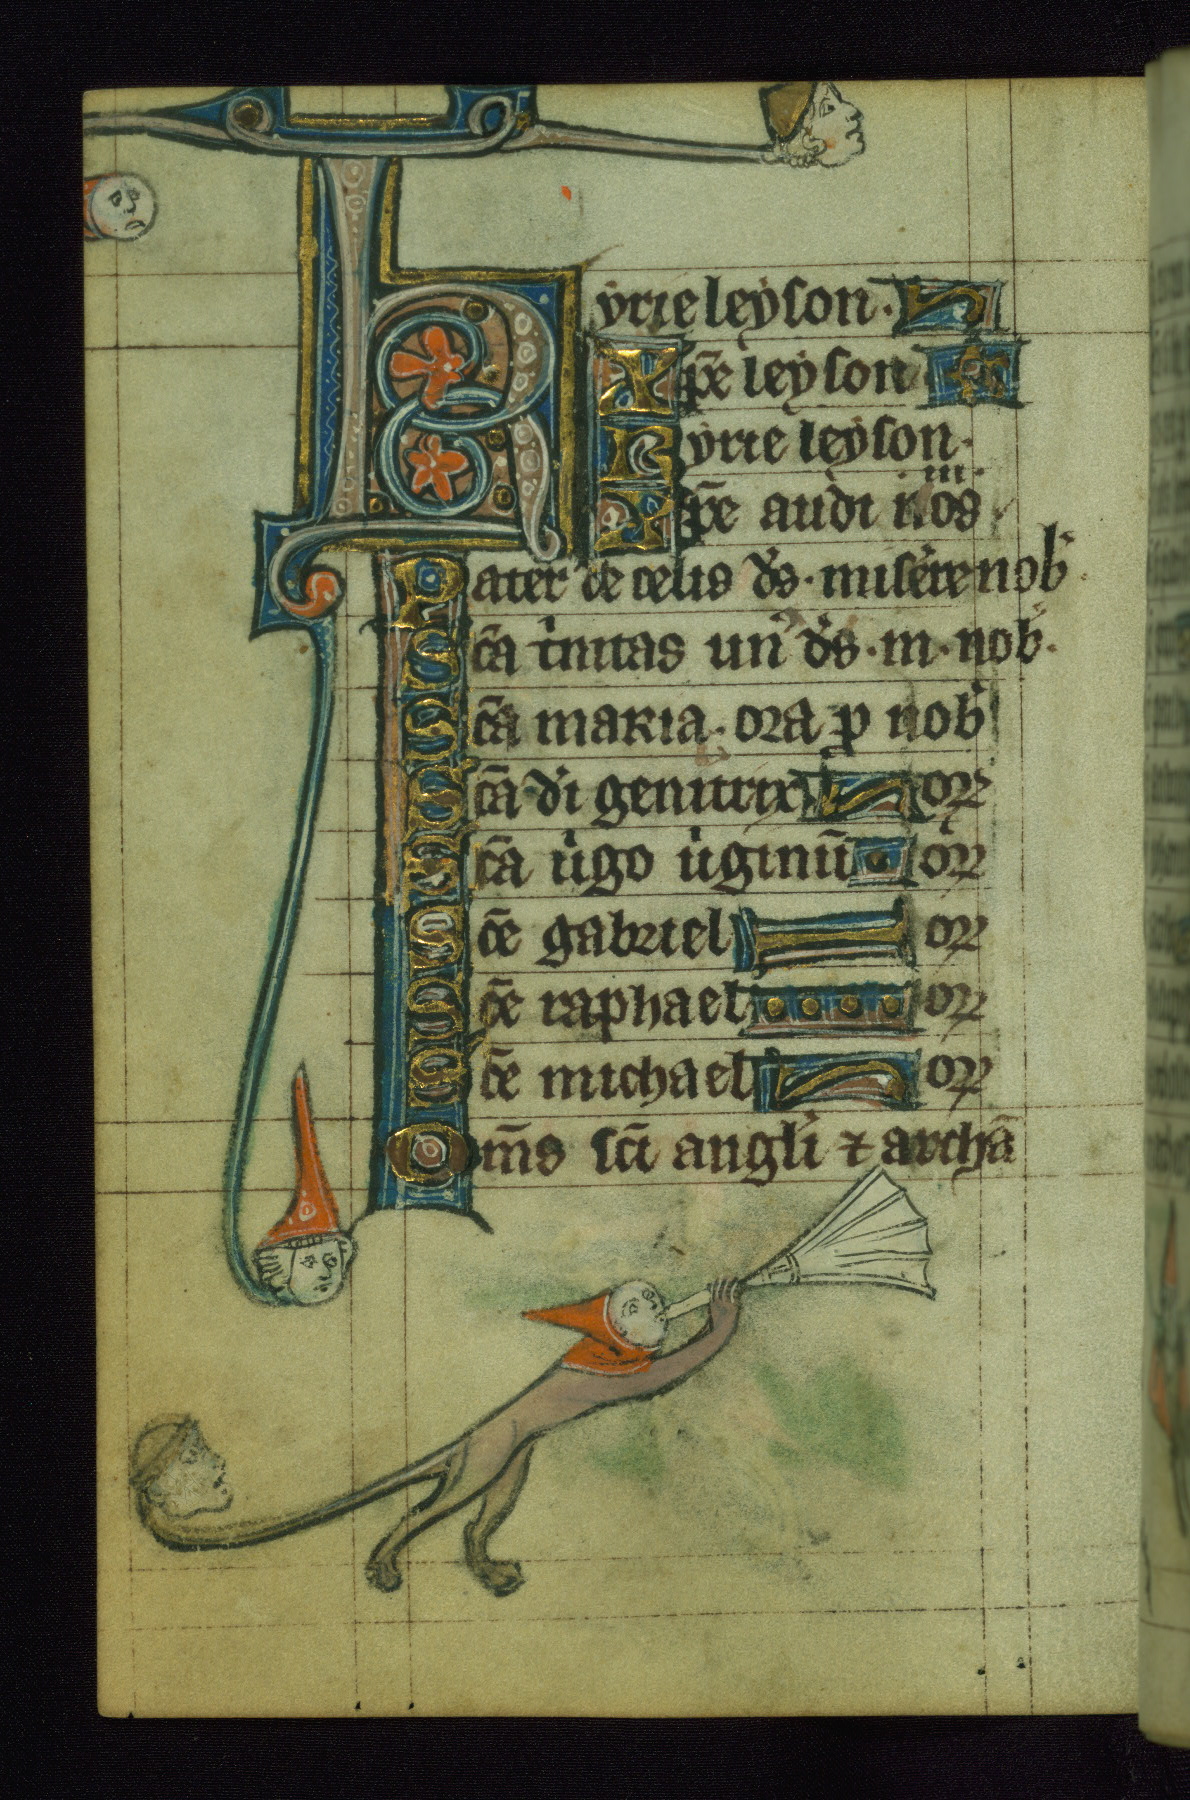 Kyrieleyson.
Xpē leyson
Kyrie leyson.
Xpē audi nos .iii.
Pater de celis ds. miserere nob
Sca trinitas un ds. m. nob.
Sca maria. ora p nob
Scā di genitrix or
Scā v̇go v̇ginū or
Scē gabriel or
Scē raphael or
Scē michael or
Om̄s sci angli ⁊ archā